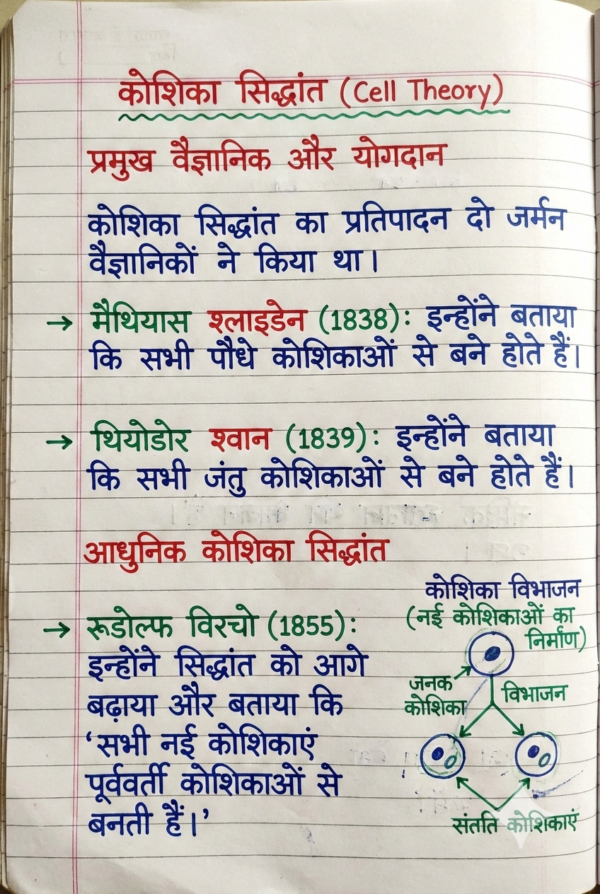 कोशिका सिद्धांत (Cell Theory)
प्रमुख वैज्ञानिक और योगदान
कोशिका सिद्धांत का प्रतिपादन दो जर्मन
वैज्ञानिकों ने किया था।
→ मैथियास श्लाइडेन (1838): इन्होंने बताया
कि सभी पौधे कोशिकाओं से बने होते हैं।
→ थियोडोर श्वान (1839): इन्होंने बताया
कि सभी जंतु कोशिकाओं से बने होते हैं।
आधुनिक कोशिका सिद्धांत
→ रूडोल्फ विरचो (1855):
इन्होंने सिद्धांत को आगे
बढ़ाया और बताया कि
‘सभी नई कोशिकाएं
पूर्ववर्ती कोशिकाओं से
बनती हैं।’
कोशिका विभाजन
(नई कोशिकाओं का
निर्माण)
जनक
कोशिका
विभाजन
संतति कोशिकाएं